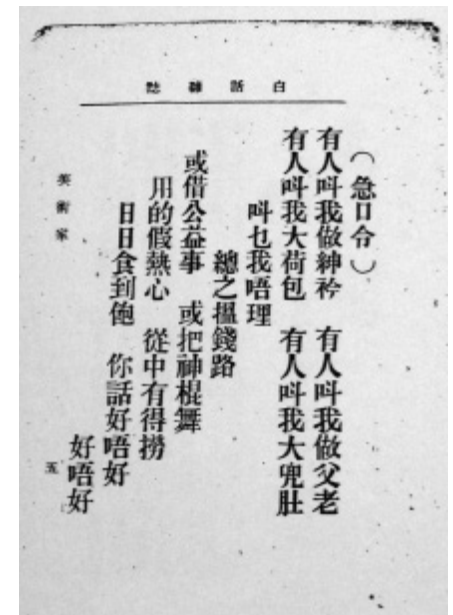 白話雜誌
（急口令）
有人呌我做紳衿　有人呌我做父老
有人呌我大荷包　有人呌我大兜肚
呌乜我唔理
總之搵錢路
或借公益事　或把神棍舞
用的假熱心　從中有得撈
日日食到飽　你話好唔好
好唔好
美術家
五